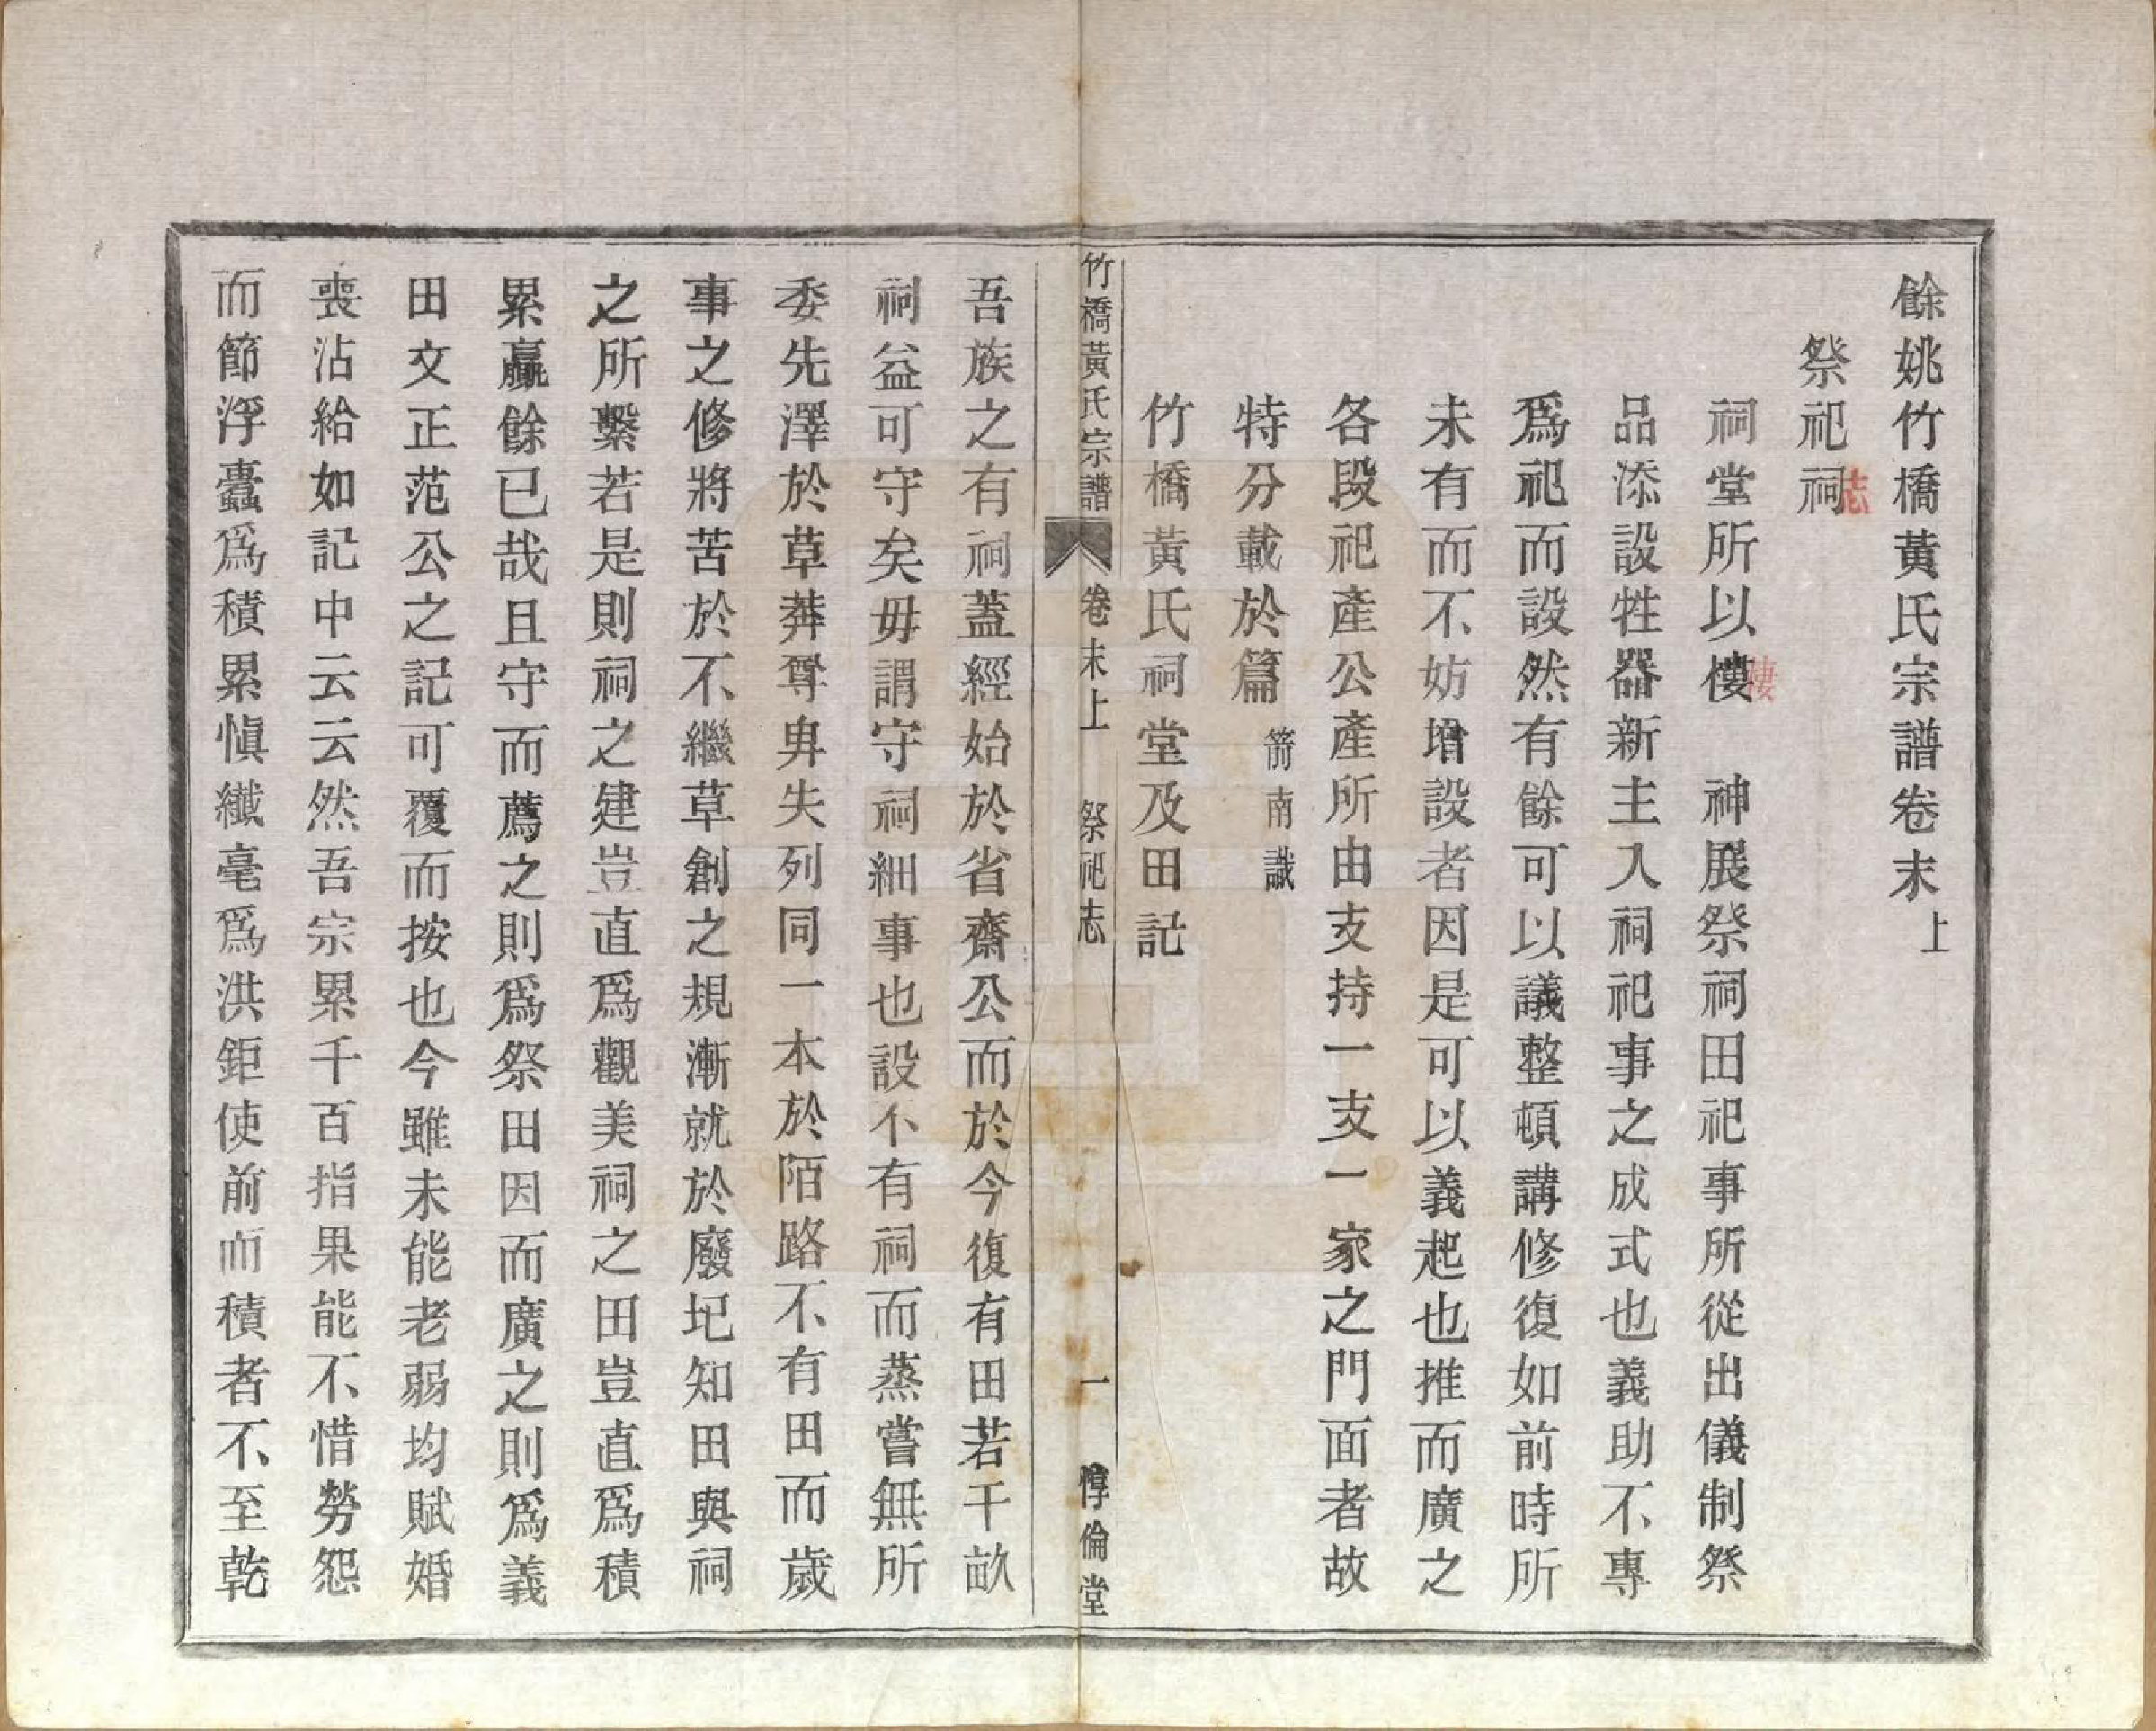 餘姚竹橋黃氏宗譜卷末上
祭祀祠志
祠堂所以樓棲　神展祭祠田祀事所從出儀制祭
品添設牲器新主入祠祀事之成式也義助不專
爲祀而設然有餘可以議整頓講修復如前時所
未有而不妨增設者因是可以義起也推而廣之
各段祀產公產所由支持一支一家之門面者故
特分載於篇　箭南識
竹橋黃氏祠堂及田記
竹橋黃氏宗譜　卷末上　祭祀志　一　惇倫堂
吾族之有祠蓋經始於省齋公而於今復有田若干畝
祠益可守矣毋謂守祠細事也設不有祠而蒸嘗無所
委先澤於草莽尊卑失列同一本於陌路不有田而歲
事之修將苦於不繼草創之規漸就於廢圯知田與祠
之所繫若是則祠之建豈直爲觀美祠之田豈直爲積
累贏餘已哉且守而薦之則爲祭田因而廣之則爲義
田文正范公之記可覆而按也今雖未能老弱均賦婚
喪沾給如記中云云然吾宗累千百指果能不惜勞怨
而節浮蠹爲積累愼纖毫爲洪鉅使前而積者不至乾